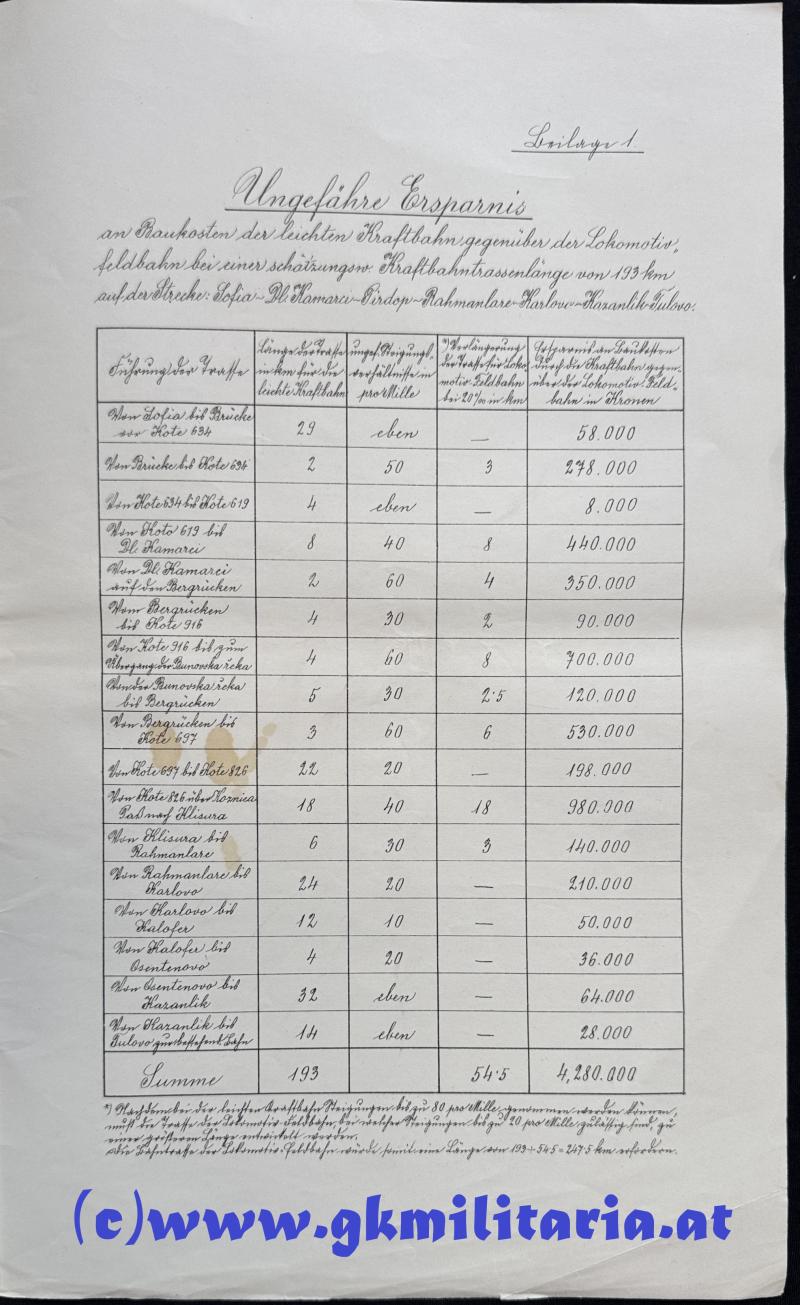 Beilage 1.
Ungefähre Ersparnis
an Baukosten der leichten Kraftbahn gegenüber der Lokomotiv-
feldbahn bei einer schätzungsw. Kraftbahntrassenlänge von 193 km
auf der Strecke: Sofia - Dl. Kamarci - Pirdop - Rahmanlare - Karlovo - Kazanlik - Tulovo.
Führung der Trasse
Länge der Trasse
in km für die
leichte Kraftbahn
ungef. Steigungs-
verhältnisse in
pro Mille
*) Verlängerung
der Trasse für Loko-
motiv-Feldbahn
bei 20‰ in km
Ersparnis an Baukosten
durch die Kraftbahn gegen-
über der Lokomotiv-Feld-
bahn in Kronen
Von Sofia bis Brücke
vor Kote 634
29 eben — 58.000
Von Brücke bis Kote 634 2 50 3 278.000
Von Kote 634 bis Kote 619 4 eben — 8.000
Von Koto 619 bis
Dl. Kamarci
8 40 8 440.000
Von Dl. Kamarci
auf den Bergrücken
2 60 4 350.000
Vom Bergrücken
bis Kote 916
4 30 2 90.000
Von Kote 916 bis zum
Übergang der Bunovska řeka
4 60 8 700.000
Von der Bunovska řeka
bis Bergrücken
5 30 2·5 120.000
Von Bergrücken bis
Kote 697
3 60 6 530.000
Von Kote 697 bis Kote 826 22 20 — 198.000
Von Kote 826 über Koznica
Paß nach Klisura
18 40 18 980.000
Von Klisura bis
Rahmanlare
6 30 3 140.000
Von Rahmanlare bis
Karlovo
24 20 — 210.000
Von Karlovo bis
Kalofer
12 10 — 50.000
Von Kalofer bis
Osentenovo
4 20 — 36.000
Von Osentenovo bis
Kazanlik
32 eben — 64.000
Von Kazanlik bis
Tulovo zur besteh&#101;nd. Bahn
14 eben — 28.000
Summe 193 54·5 4,280.000
*) Nachdem bei der leichten Kraftbahn Steigungen bis zu 80 pro Mille genommen werden können,
muß die Trasse der Lokomotiv-Feldbahn, bei welcher Steigungen bis zu 20 pro Mille zulässig sind, zu
einer größeren Länge entwickelt werden.
Die Bahntrasse der Lokomotiv-Feldbahn würde somit eine Länge von 193 + 54·5 = 247·5 km erfordern.
(c)www.gkmilitaria.at